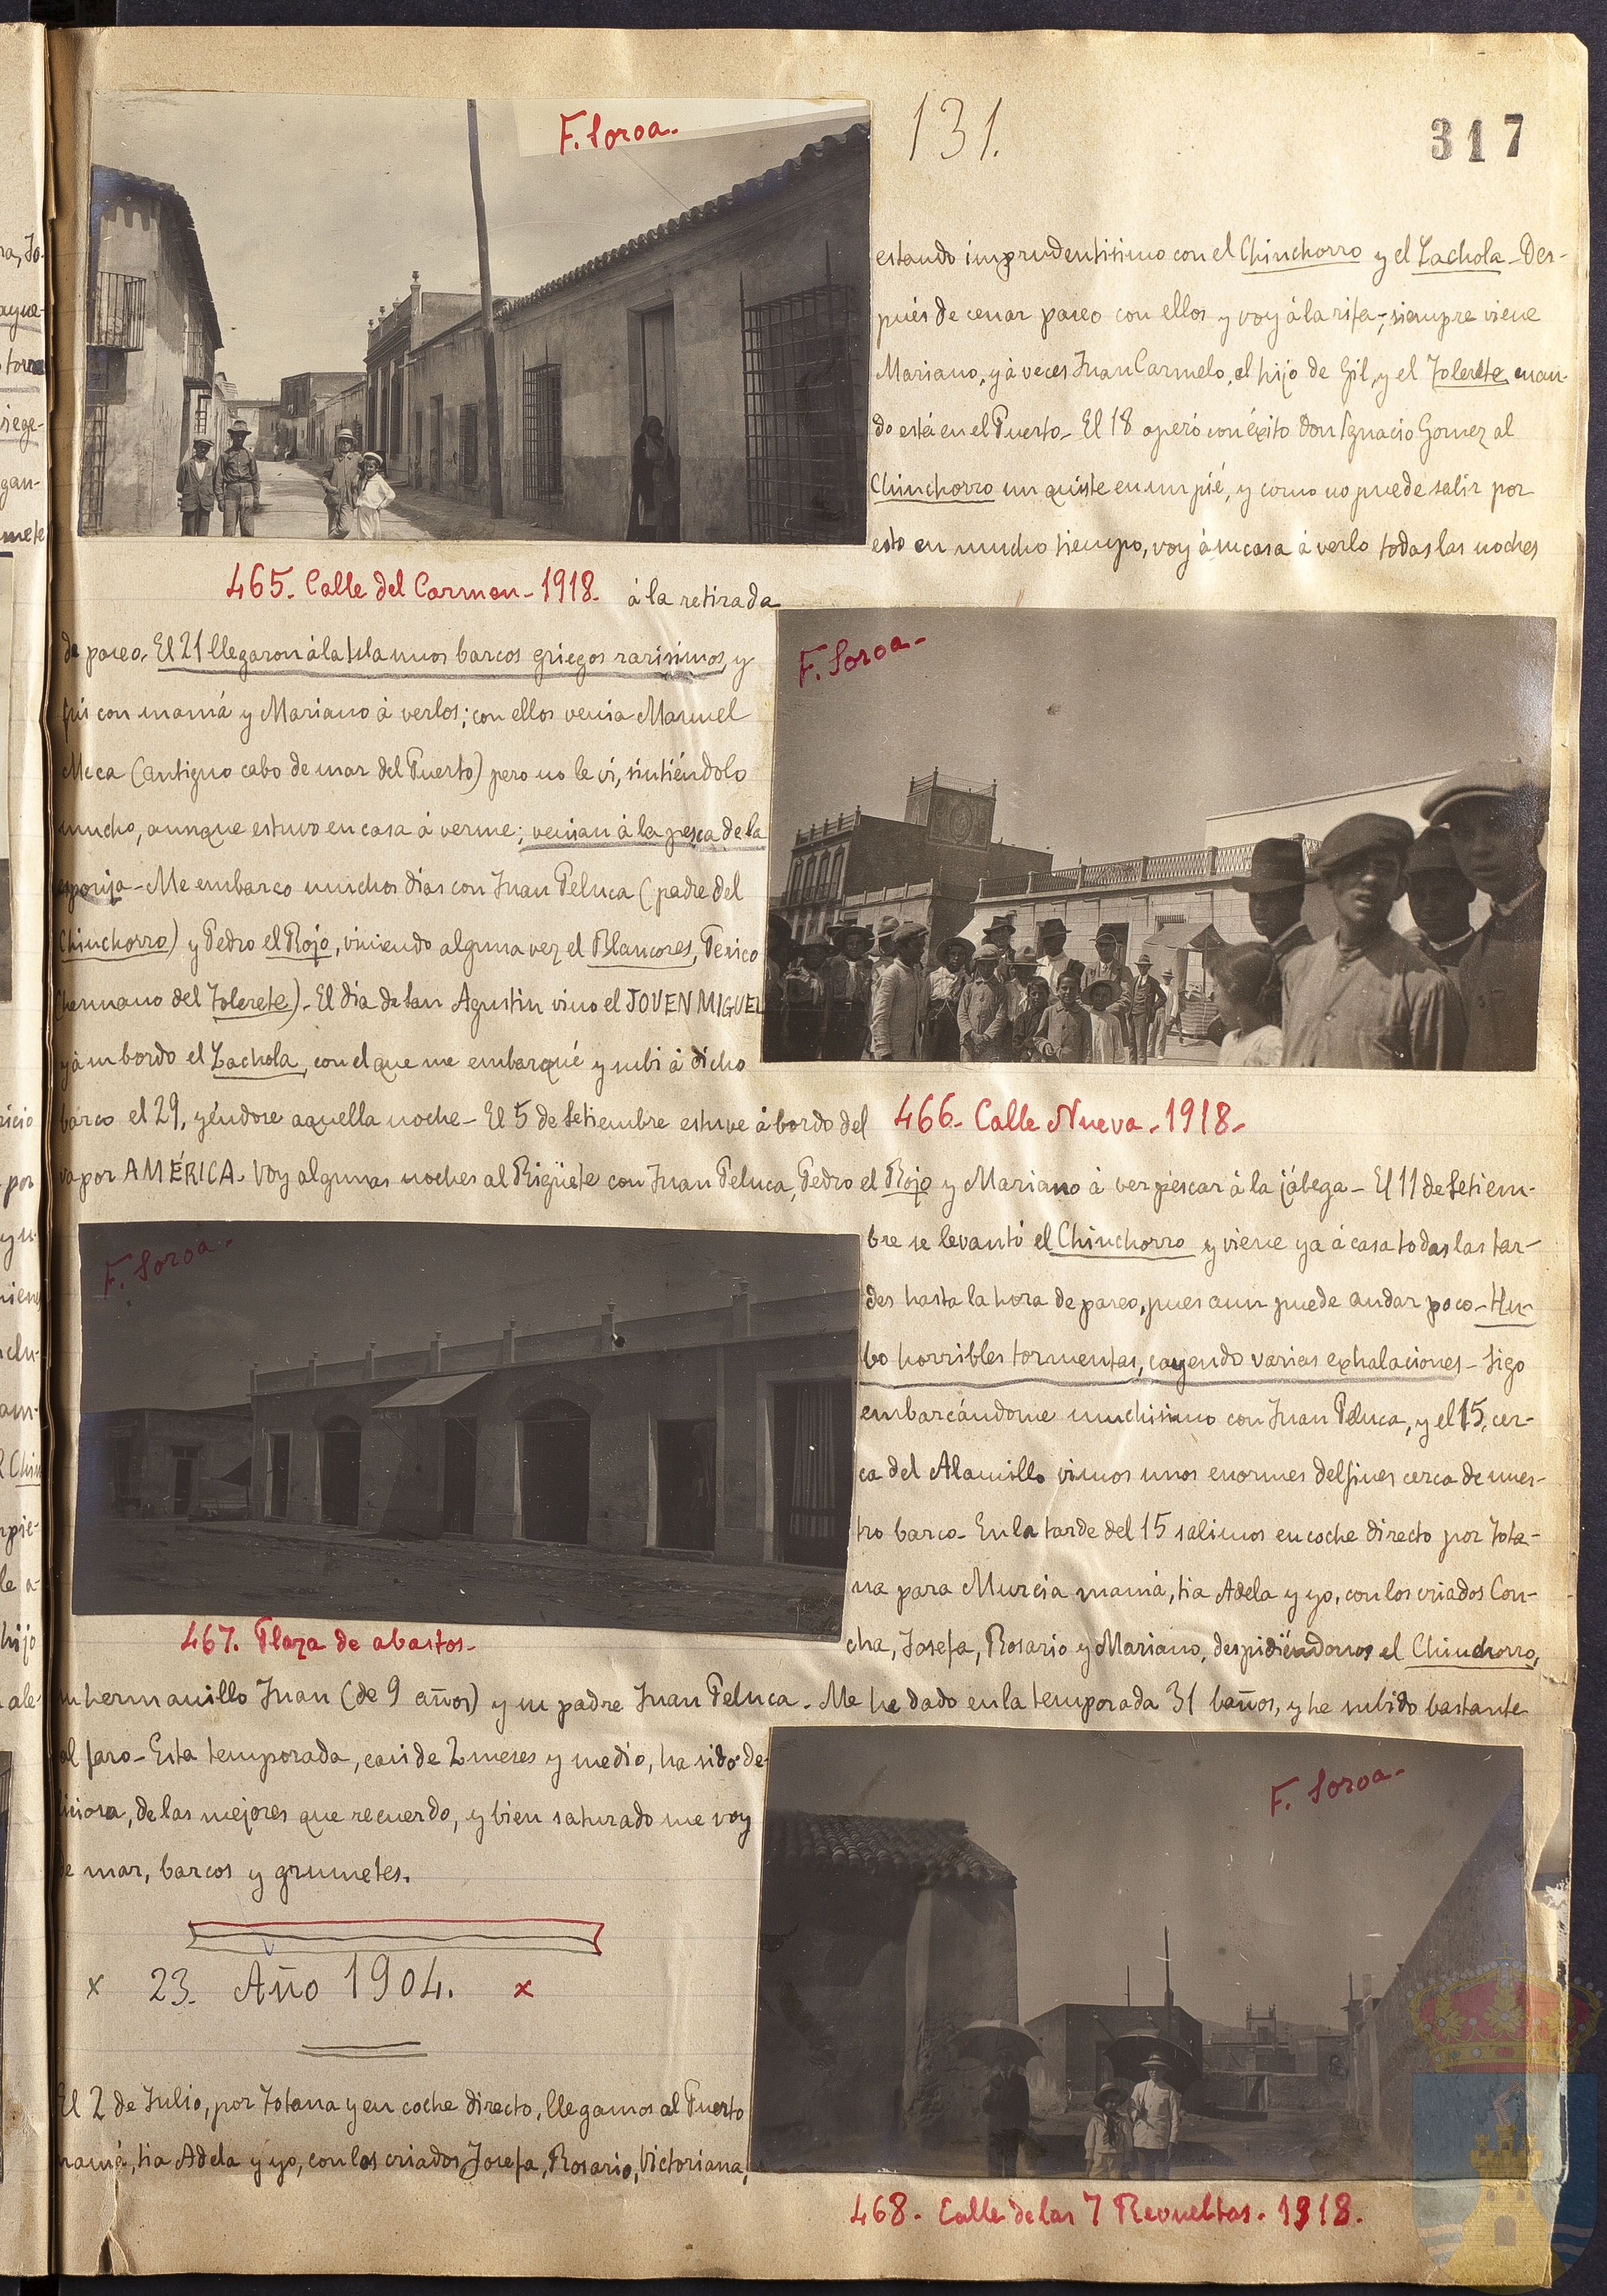 F. Soroa.
131.
317
estando imprudentisimo con el Chinchorro y el Lachola - Des-
pués de cenar paseo con ellos y voy á la rifa -; siempre viene
Mariano, y á veces Juan Carmelo, el hijo de Gil, y el Tolerete cuan-
do está en el Puerto - El 18 operó con éxito don Ignacio Gomez al
Chinchorro un quiste en un pié, y como no puede salir por
esto en mucho tiempo, voy á su casa á verlo todas las noches
465. Calle del Carmen - 1918.
á la retirada
de paseo. El 21 llegaron á la Isla unos barcos griegos rarisimos, y
fui con mamá y Mariano á verlos; con ellos venia Manuel
Meca (antiguo cabo de mar del Puerto) pero no le vi, sintiéndolo
mucho, aunque estuvo en casa á verme; venian á la pesca de la
esponja - Me embarco muchos dias con Juan Peluca (padre del
Chinchorro) y Pedro el Rojo, viniendo alguna vez el Blancores, Perico
(hermano del Tolerete) - El dia de San Agustin vino el JOVEN MIGUEL
y á su bordo el Lachola, con el que me embarqué y subi á dicho
barco el 29, yéndose aquella noche - El 5 de Setiembre estuve á bordo del
F. Soroa -
466. Calle Nueva - 1918 -
vapor AMÉRICA. Voy algunas noches al Rigüete con Juan Peluca, Pedro el Rojo y Mariano á ver pescar á la jábega - El 11 de Setiem-
bre se levantó el Chinchorro y viene ya á casa todas las tar-
des hasta la hora de paseo, pues aun puede andar poco - Hu-
bo horribles tormentas, cayendo varias exhalaciones - Sigo
embarcándome muchisimo con Juan Peluca, y el 15, cer-
ca del Alamillo vimos unos enormes delfines cerca de nues-
tro barco - En la tarde del 15 salimos en coche directo por Tota-
na para Murcia mamá, tia Adela y yo, con los criados Con-
cha, Josefa, Rosario y Mariano, despidiéndonos el Chinchorro,
F. Soroa -
467. Plaza de abastos -
su hermanillo Juan (de 9 años) y su padre Juan Peluca - Me he dado en la temporada 31 baños, y he subido bastante
al faro - Esta temporada, casi de 2 meses y medio, ha sido de-
liciosa, de las mejores que recuerdo, y bien saturado me voy
de mar, barcos y grumetes.
x 23. Año 1904. x
El 2 de Julio, por Totana y en coche directo, llegamos al Puerto
mamá, tia Adela y yo, con los criados Josefa, Rosario, Victoriana,
F. Soroa -
468 - Calle de las 7 Revueltas - 1918.